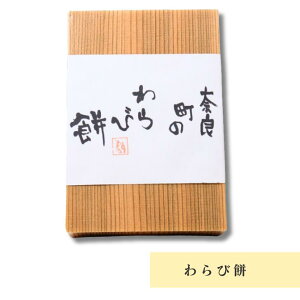 奈良
町の
わらび
餅
わらび餅